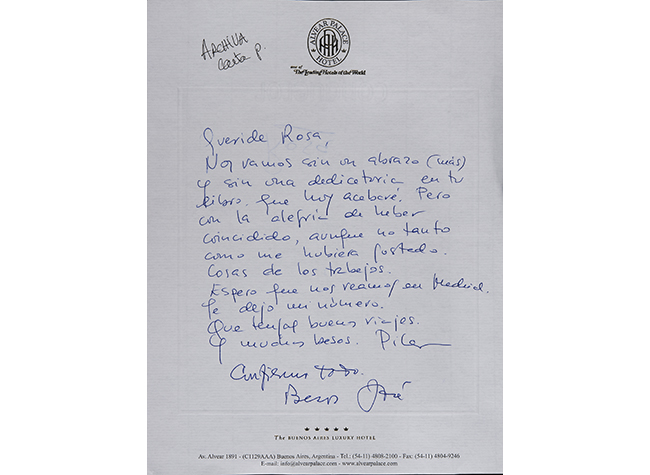 ARCHIVA
Carta P.
ALVEAR PALACE
HOTEL
one of
The Leading Hotels of the World
Querida Rosa,
Nos vamos sin un abrazo (más)
y sin una dedicatoria en tu
libro, que hoy acabaré. Pero
con la alegría de haber
coincidido, aunque no tanto
como me hubiera gustado.
Cosas de los trabajos.
Espero que nos veamos en Madrid.
Te dejo mi número.
Que tengas buenos viajes.
Y muchos besos. Pilar
Confirmo todo.
Besos José
The BUENOS AIRES LUXURY HOTEL
Av. Alvear 1891 - (C1129AAA) Buenos Aires, Argentina - Tel.: (54-11) 4808-2100 - Fax: (54-11) 4804-9246
E-mail: info@alvearpalace.com - www.alvearpalace.com